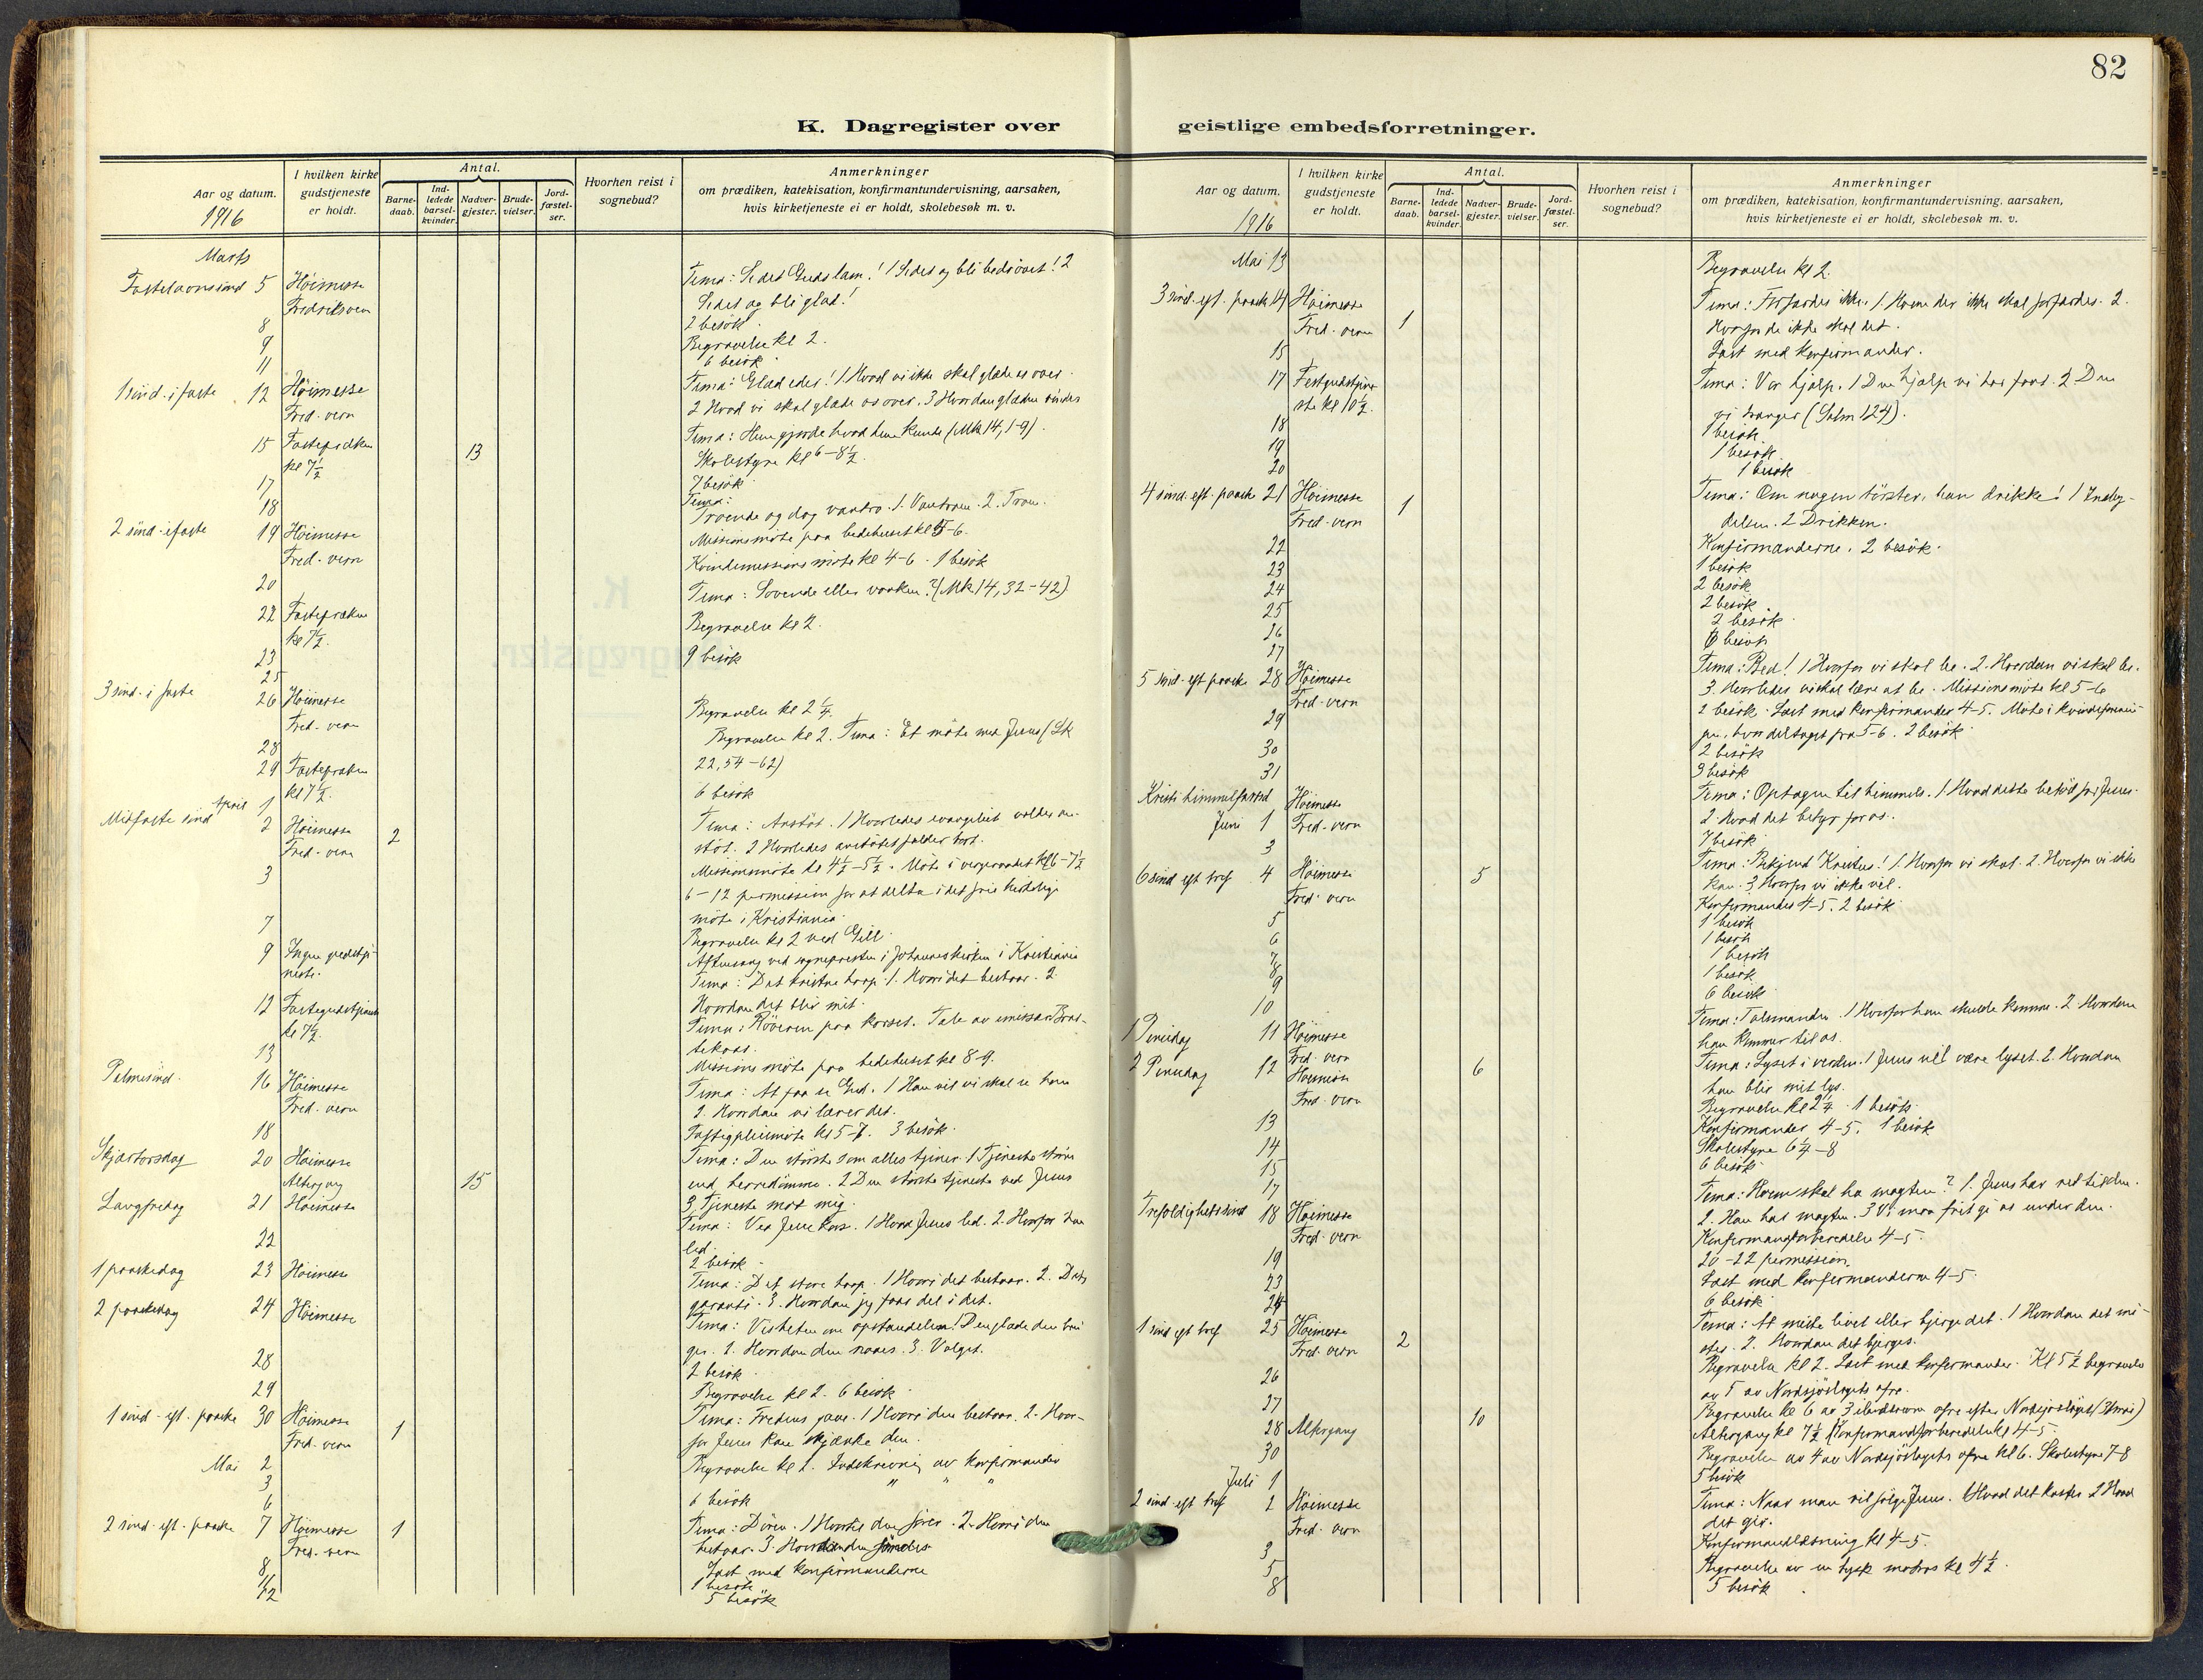 82
K. Dagregister over
geistlige embedsforretninger.
Aar og datum.
1916
I hvilken kirke gudstjeneste er holdt.
Antal.
Barnedaab.
Indledede barselkvinder.
Nadvergjester.
Brudevielser.
Jordfæstelser.
Hvorhen reist i sognebud?
Anmerkninger
om prædiken, katekisation, konfirmantundervisning, aarsaken,
hvis kirketjeneste ei er holdt, skolebesøk m. v.
Marts
Fastelavnssønd 5 Höimesse Tema: Se det Guds lam! 1 Se det og bli bedrövet! 2
Fredriksvern Se det og bli glad!
8 2 besök
9 Begravelse kl 2.
11 6 besök
1 sönd. i faste 12 Höimesse Tema: Glæd eder! 1 Hvad vi ikke skal glæde os over.
Fred. vern 2 Hvad vi skal glæde os over. 3 Hvordan glæden vindes
15 Fasteprædken 13 Tema: Hun gjorde hvad hun kunde (Mk 14, 1-9).
kl 7½ Skolestyre kl 6-8½.
17 7 besök
18 Tema:
2 sönd. i faste 19 Höimesse Troende og dog vantro. 1. Vantroen. 2. Troen.
Fred. vern Missionsmöte paa bedehuset kl 5-6.
20 Kvindemissionsmöte kl 4-6. 1 besök
22 Fastepræken Tema: Sovende eller vaaken? (Mk 14, 32-42)
kl 7½. Begravelse kl 2.
23 9 besök
25
3 sönd. i faste 26 Höimesse
Fred. vern Begravelse kl 2¼.
28 Begravelse kl 2. Tema: Et möte med Jesus (Lk
29 Fastepræken 22, 54-62)
kl 7½.
April 1 6 besök
Midfaste sönd 2 Höimesse 2 Tema: Anstöt. 1 Hvorledes evangeliet volder an-
Fred. vern stöt. 2 Hvorledes anstötet falder bort.
3 Missionsmöte kl 4½-5½. Möte i vergeraadet kl 6-7½
6-12 permission for at delta i det frie kirkelige
möte i Kristiania.
7 Begravelse kl 2 ved Gill.
9 Ingen gudstje- Aftensang ved sognepresten i Johanneskirken i Kristiania
neste. Tema: Det kristne haap. 1. Hvori det bestaar. 2
Hvordan det blir mit.
12 Fastegudstjeneste Tema: Röveren paa korset. Tale av emissær
kl 7½.
13 Missionsmöte paa bedehuset kl 8-9.
Palmesönd. 16 Höimesse Tema: At faa se Gud. 1 Han vil vi skal se ham
Fred. vern 2. Hvordan vi lærer det.
18 Fattigpleiemöte kl 5-7. 3 besök.
Skjærtorsdag 20 Höimesse Tema: Den störste som alles tjener. 1 Tjeneste större
Altergang 15 end herredömme. 2 Den störste tjeneste ved Jesus
3 Tjeneste mot mig.
Langfredag 21 Höimesse Tema: Ved Jesu kors. 1 Hvad Jesus led. 2. Hvorfor han
led.
22 2 besök
1 paaskedag 23 Höimesse Tema: Det store haap. 1 Hvori det bestaar. 2. Dets
garanti. 3. Hvordan jeg faar del i det.
2 paaskedag 24 Höimesse Tema: Visheten om opstandelsen! Den glæde den brin
ger. 2. Hvordan den naaes. 3. Valget.
28 2 besök
29 Begravelse kl 2. 6 besök
1 sönd. eft. paaske 30 Höimesse 1 Tema: Fredens gave. 1 Hvori den bestaar. 2. Hvor-
Fred. vern for Jesus kan skjænke den.
Mai 2 Begravelse kl 2. Indskrivning av konfirmander
3 " " "
6 6 besök
2 sönd. eft. paaske 7 Höimesse 1 Tema: Dören. 1 Hvortil den förer. 2. Hvori den
Fred. vern bestaar. 3. Hvordan den findes
8 Læst med konfirmanderne
11 1 besök
12 5 besök
Aar og datum.
1916
I hvilken kirke gudstjeneste er holdt.
Antal.
Barnedaab.
Indledede barselkvinder.
Nadvergjester.
Brudevielser.
Jordfæstelser.
Hvorhen reist i sognebud?
Anmerkninger
om prædiken, katekisation, konfirmantundervisning, aarsaken,
hvis kirketjeneste ei er holdt, skolebesøk m. v.
Mai 13 Begravelse kl 2.
3 sönd. eft. paaske 14 Höimesse 1 Tema: Forfærdes ikke. 1. Hvem der ikke skal forfærdes. 2.
Fred. vern Hvorfor de ikke skal det.
15 Læst med konfirmander.
17 Festgudstjene Tema: Vor hjælp. 1 Den hjælp vi har faat. 2 Den
ste kl 10½. vi trænger (Salm 124).
18 1 besök
19 1 besök
20 1 besök
4 sönd. eft. paaske 21 Höimesse 1 Tema: Om nogen törster, han drikke! 1 Indby-
Fred. vern delsen. 2 Drikken.
22 Konfirmanderne. 2 besök.
23 1 besök
24 2 besök
25 2 besök
26 2 besök
27 6 besök
5 sönd. eft paaske 28 Höimesse Tema: Bed! 1 Hvorfor vi skal be. 2. Hvordan vi skal be.
Fred. vern 3. Hvorledes vi skal lære at be. Missionsmöte kl 5-6
29 2 besök. Læst med konfirmander 4-5. Möte i kvindeforenin-
gen, hvor deltaget fra 5-6. 2 besök
30 2 besök
31 3 besök
Kristi himmelfartsd Höimesse Tema: Optagen til himmels. 1 Hvad dette betöd for Jesus.
Juni 1 Fred. vern 2. Hvad det betyr for os.
3 7 besök
6 sönd eft tref 4 Höimesse 5 Tema: Bekjend Kristus! 1. Hvorfor vi skal. 2. Hvorfor vi ikke
Fred. vern kan. 3 Hvorfor vi ikke vil.
5 Konfirmander 4-5. 2 besök
6 1 besök
7 1 besök
8 1 besök
9 1 besök
10 6 besök
1 Pinsedag 11 Höimesse Tema: Talsmanden. 1 Hvorfor han skulde komme. 2 Hvordan
Fred. vern han kommer til os.
2 Pinsedag 12 Höimesse 6 Tema: Lyset i verden. 1 Jesus vil være lyset. 2. Hvordan
Fred. vern han blir mit lys.
13 Begravelse kl 2¼. 1 besök.
14 Konfirmander 4-5. 1 besök
15 Skolestyre 6¼-8
17 6 besök
Trefoldighetssönd 18 Höimesse Tema: Hvem skal ha magten? 1. Jesus har ret til den.
Fred. vern 2. Han har magten. 3 Vi maa frit gi os under den.
19 Konfirmantforberedelse 4-5.
20-22 permission.
23 Læst med konfirmanderne 4-5.
24 6 besök
1 sönd eft tref 25 Höimesse 2 Tema: At miste livet eller bjerge det. 1 Hvordan det mi-
Fred. vern stes. 2. Hvordan det bjerges.
26 Begravelse kl 2. Læst med konfirmander. Kl 5½ begravelse
av 5 av Nordsjöslagets ofre.
27 Begravelse kl 6 av 3 ofre efter Nordsjöslaget
28 Altergang 10 Altergang kl 7½ Konfirmandforberedelse kl 4-5
30 Begravelse av 4 av Nordsjöslagets ofre kl 6. Skolestyre 7-8
Juli 1 5 besök
2 sönd. eft tref 2 Höimesse Tema: Naar man vil fölge Jesus. 1 Hvad det koster 2 Hvad
Fred. vern det gir.
3 Konfirmandlæsning kl 4-5.
5 Begravelse av en tysk matros kl 4½.
8 5 besök